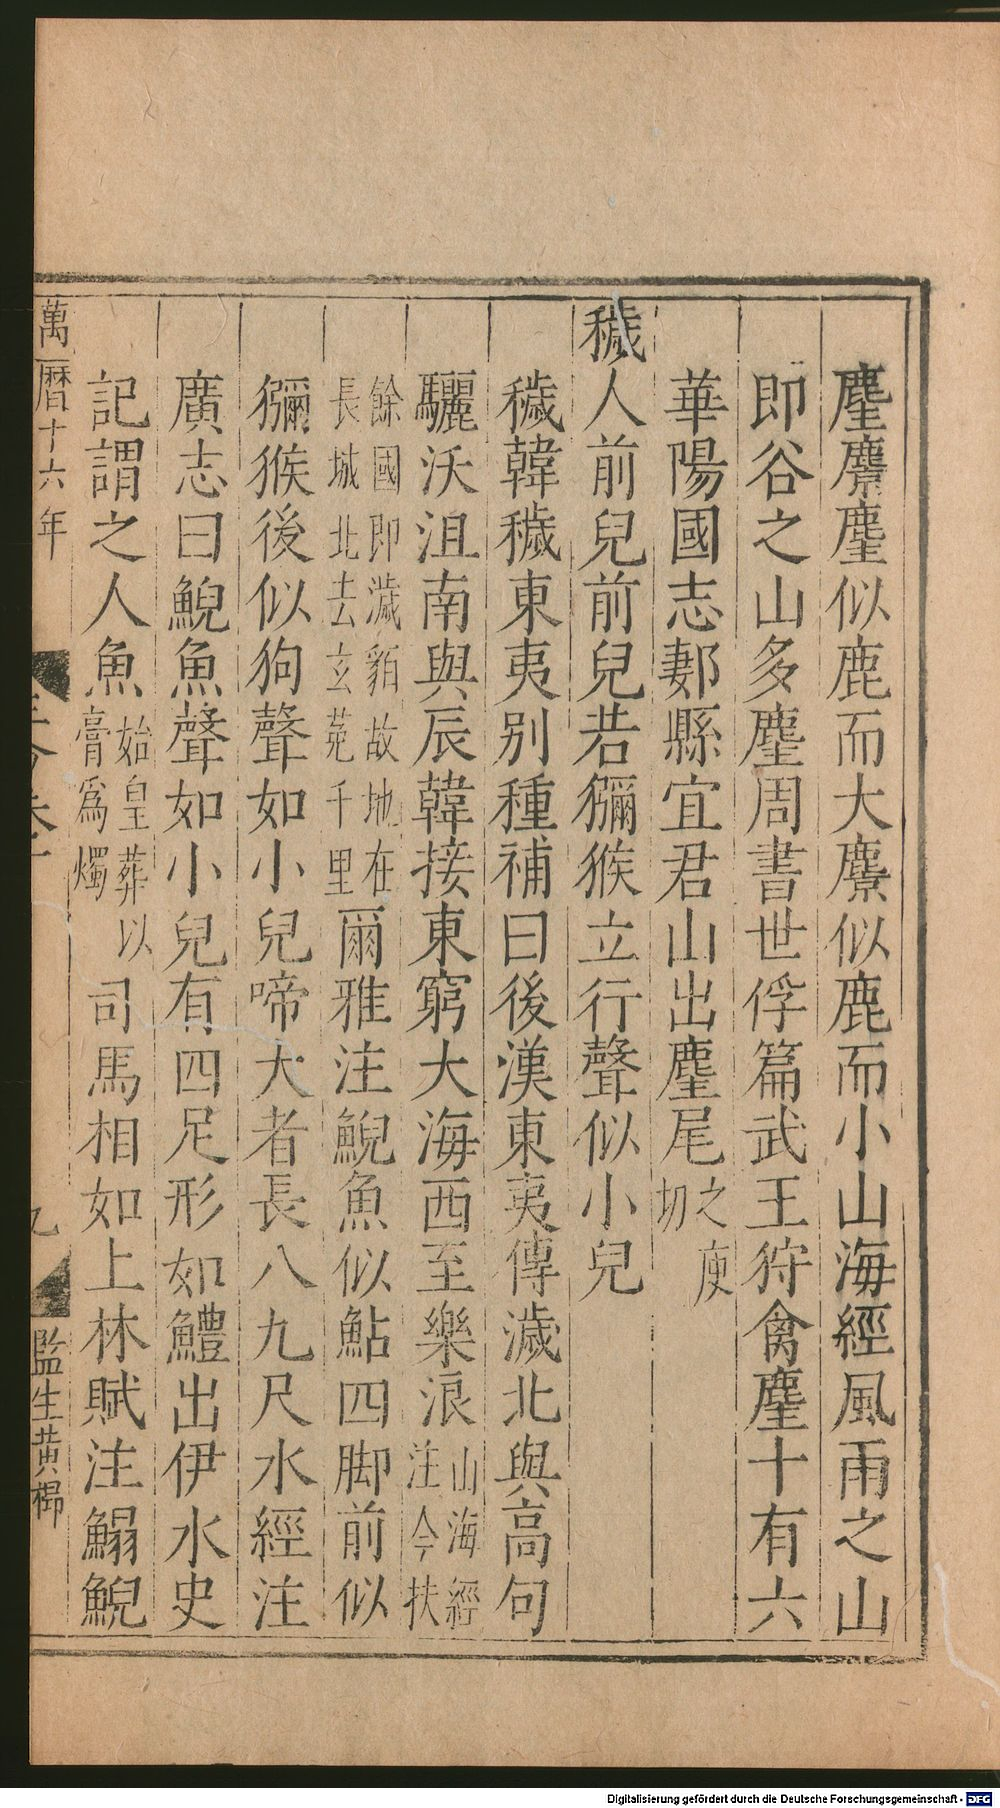 麈麖麈似鹿而大麖似鹿而小山海經風雨之山
即谷之山多麈周書世俘篇武王狩禽麈十有六
華陽國志郪縣宜君山出麈尾之庾切
穢人前兒前兒若獼猴立行聲似小兒
穢韓穢東夷别種補曰後漢東夷傳濊北與高句
驪沃沮南與辰韓接東窮大海西至樂浪山海經注今扶
餘國即濊貊故地在長城北去玄菟千里爾雅注鯢魚似鮎四脚前似
獼猴後似狗聲如小兒啼大者長八九尺水經注
廣志曰鯢魚聲如小兒有四足形如鱧出伊水史
記謂之人魚始皇葬以膏爲燭司馬相如上林賦注鰨鯢
萬曆十六年
九
監生黄
Digitalisierung gefördert durch die Deutsche Forschungsgemeinschaft - DFG